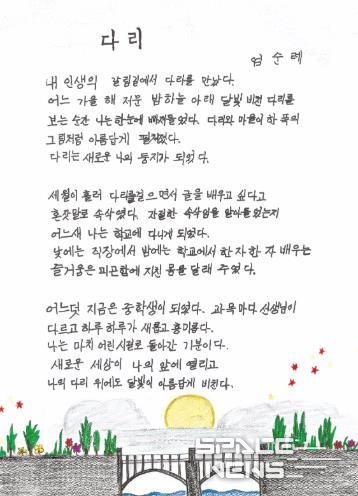 다리
엄순례
내 인생의 갈림길에서 다리를 만났다.
어느 가을 해 저문 밤하늘 아래 달빛 비친 다리를
보는 순간 나는 한눈에 빠져들었다. 다리와 마을이 한 폭의
그림처럼 아름답게 펼쳐졌다.
다리는 새로운 나의 둥지가 되었다.
세월이 흘러 다리를 걸으면서 글을 배우고 싶다고
혼잣말로 속삭였다. 간절한 속삭임을 알아들었는지
어느새 나는 학교에 다니게 되었다.
낮에는 직장에서 밤에는 학교에서 한 자 한 자 배우는
즐거움은 피곤함에 지친 몸을 달래 주었다.
어느덧 지금은 중학생이 되었다. 과목마다 선생님이
다르고 하루 하루가 새롭고 흥미롭다.
나는 마치 어린 시절로 돌아간 기분이다.
새로운 세상이 나의 앞에 열리고
나의 다리 위에도 달빛이 아름답게 비친다.
SPACE
NEWS